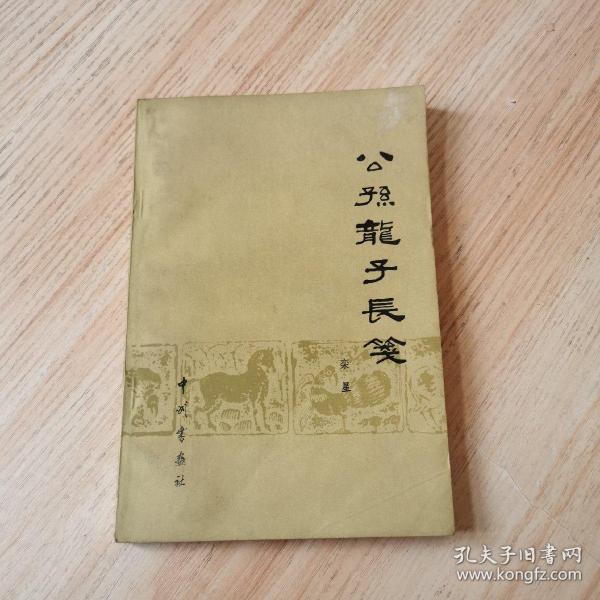 公孫龍子長箋
栾星
中州書畫社
孔夫子旧書网
www.kongfz.com